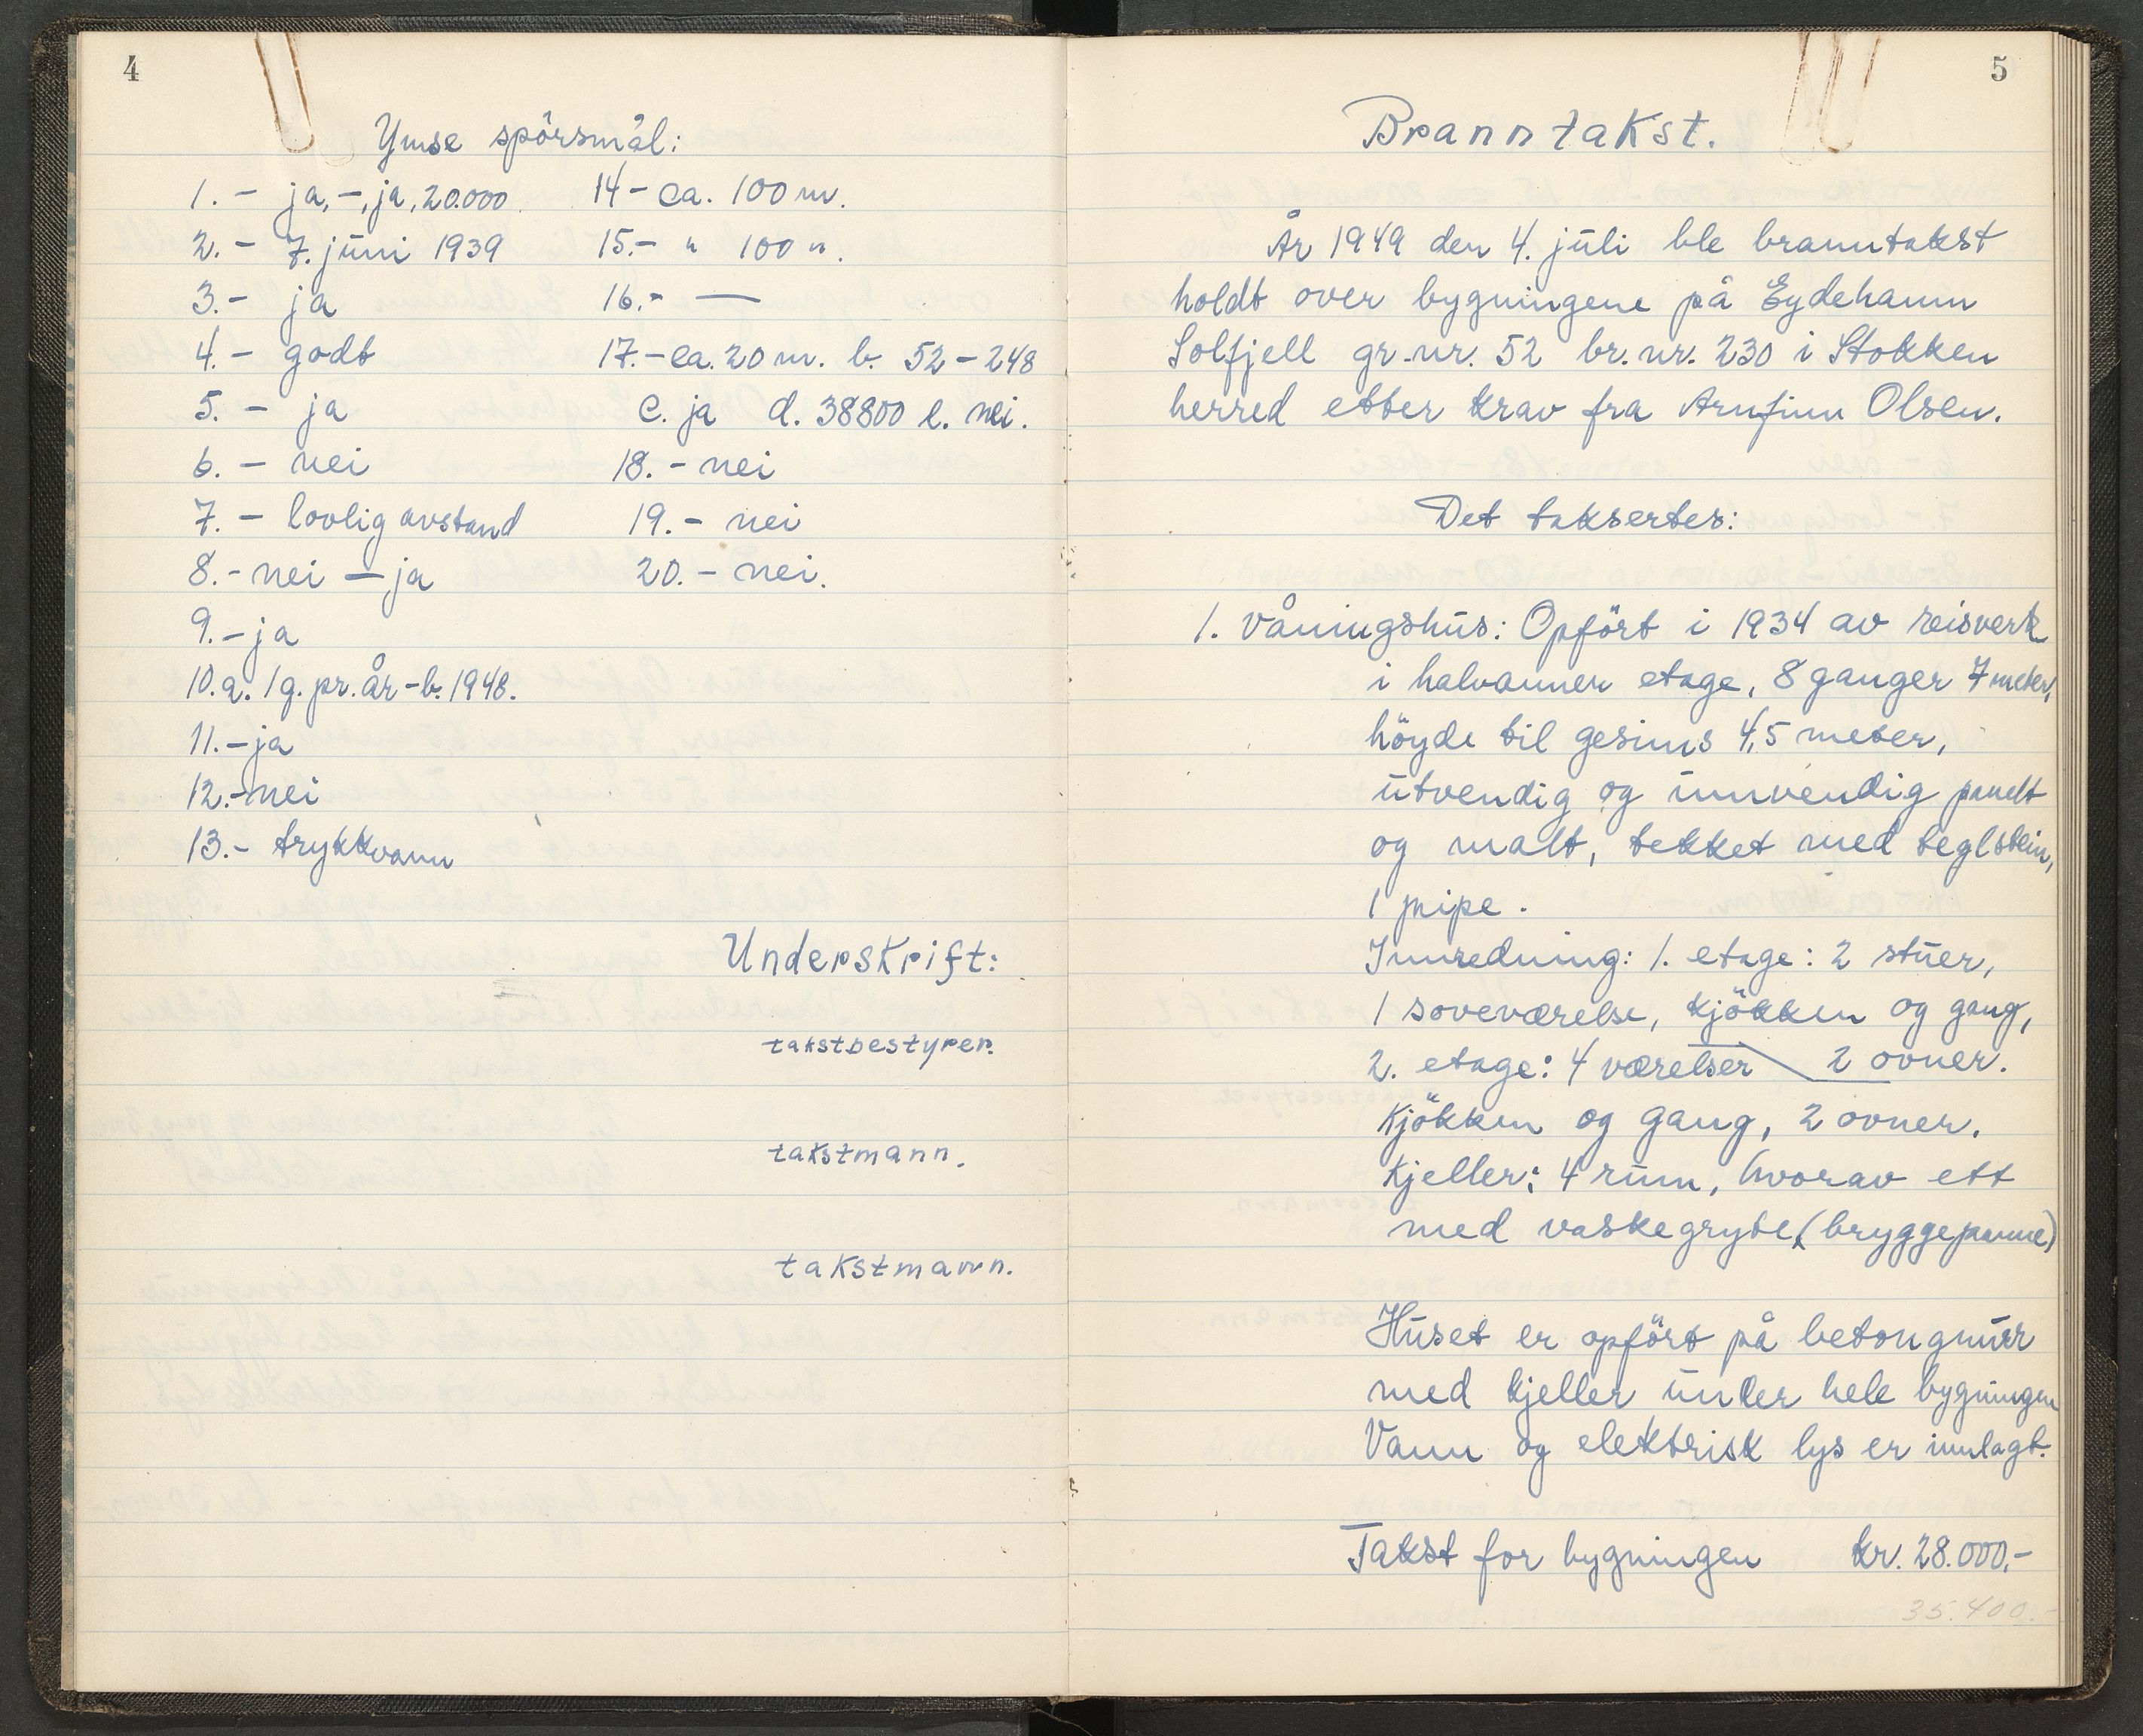 4
Ymse spörsmål:
1. - ja, -, ja, 20.000
2. - 7. juni 1939
3. - ja
4. - godt
5. - ja
6. - nei
7. - lovlig avstand
8. - nei - ja
9. - ja
10. a. 1 g. pr. år - b. 1948.
11. - ja
12. - nei
13. - trykkvann
14 - ca. 100 m.
15. - " 100 ".
16. - —
17. - ca. 20 m. b. 52 - 248
c. ja d. 38800 e. nei.
18. - nei
19. - nei
20. - nei.
Underskrift:
takstbestyrer.
takstmann.
takstmann.
5
Branntakst.
År 1949 den 4. juli ble branntakst
holdt over bygningene på Eydehamn
Solfjell gr.nr. 52 br.nr. 230 i Stokken
herred etter krav fra Arnfinn Olsen.
Det taksertes:
1. Våningshus: Opfört i 1934 av reisverk
i halvannen etage, 8 ganger 7 meter,
höyde til gesims 4,5 meter,
utvendig og innvendig panelt
og malt, tekket med teglstein,
1 pipe.
Innredning: 1. etage: 2 stuer,
1 soveværelse, kjökken og gang,
2. etage: 4 værelser 2 ovner.
Kjökken og gang, 2 ovner.
Kjeller: 4 rum, hvorav ett
med vaskegryte, (bryggepanne)
Huset er opfört på betongmur
med kjeller under hele bygningen
Vann og elektrisk lys er innlagt.
Takst for bygningen kr. 28.000,-
35.400.-